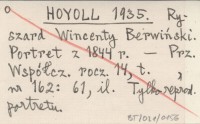 HOYOLL 1935. Ry-
szard Wincenty Berwiński.
Portret z 1844 r. — Prz.
Współcz. rocz. 14, t.
nr 162: 61, il. Tylko reprod.
portretu.